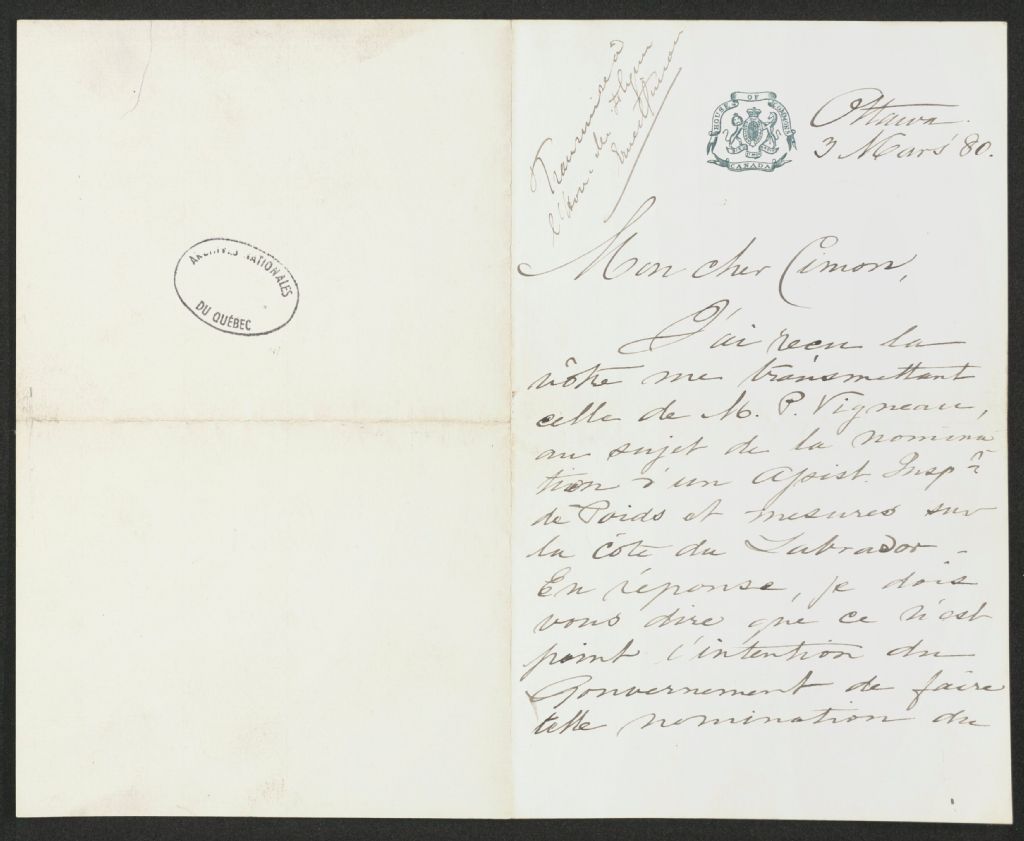 ARCHIVES NATIONALES
DU QUÉBEC
Transmise à
l'Hon. du
Ernest
HOUSE OF COMMONS
CANADA
Ottawa.
3 Mars '80.
Mon cher Cimon,
J'ai recu la
vôtre me transmettant
celle de M. P. Vigneau,
au sujet de la nomina
tion d'un Assist. Inspr
de Poids et mesures sur
la côte du Labrador -
En réponse, je dois
vous dire que ce n'est
point l'intention du
Gouvernement de faire
telle nomination du